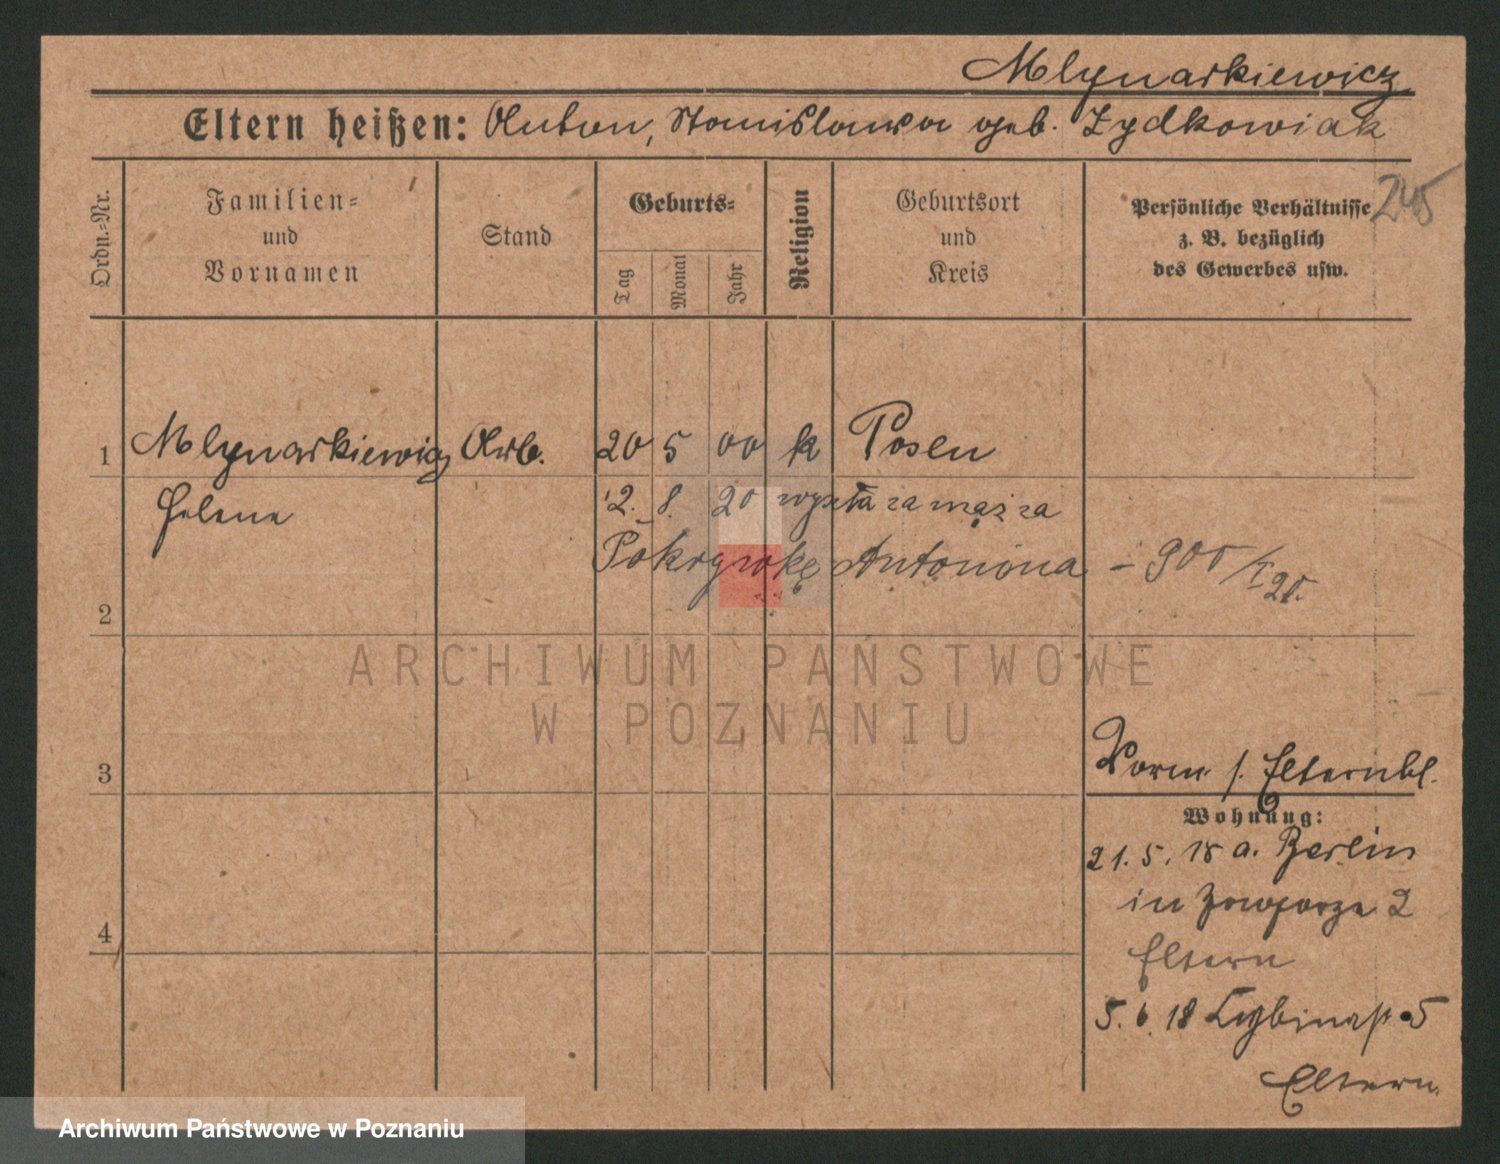 Mlynarkiewicz
Eltern heißen: Anton, Stanislawa geb. Zydkowiak
245
Ordn.-Nr.
Familien-
und
Vornamen
Stand
Geburts-
Tag
Monat
Jahr
Religion
Geburtsort
und
Kreis
Persönliche Verhältnisse
z. B. bezüglich
des Gewerbes usw.
1 Mlynarkiewicz Arb. 20 5 00 k Posen
Helene
12. 8. 20 wyszła za mąż za
Pokrywkę Antoniona - 900/I 20.
2
ARCHIWUM PAŃSTWOWE
W POZNANIU
3
Vorm. s. Elternbl.
Wohnung:
21. 5. 18 a. Berlin
in 2
4
Eltern
5. 6. 18 Cybinastr. 5
Eltern
Archiwum Państwowe w Poznaniu